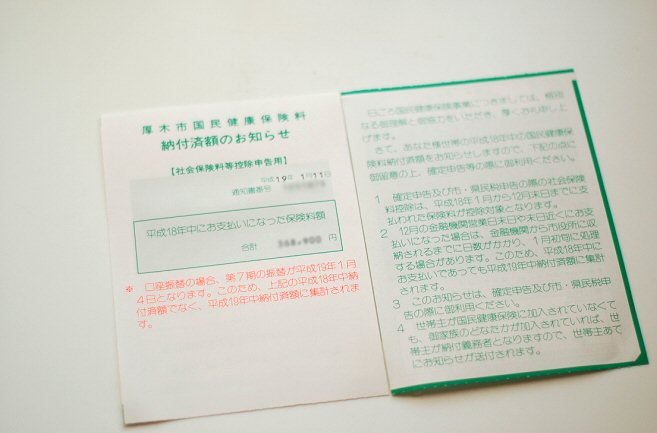 厚木市国民健康保険料
納付済額のお知らせ
【社会保険料等控除申告用】
平成19年 1月11日
通知書番号
平成18年中にお支払いになった保険料額
合計 円
※ 口座振替の場合、第7期の振替が平成19年1月
4日となります。このため、上記の平成18年中納
付済額でなく、平成19年中納付済額に集計されま
す。
日ごろ国民健康保険事業につきましては、格別
なる御理解と御協力をいただき、厚くお礼申し上
げます。
さて、あなた様世帯の平成18年中の国民健康保
険料納付済額をお知らせしますので、下記の点に
御留意の上、確定申告等の際に御利用ください。
1 確定申告及び市・県民税申告の際の社会保険
料控除は、平成18年1月から12月末日までに支
払われた保険料が控除対象となります。
2 12月の金融機関営業日末日や末日近くにお支
払いになった場合は、金融機関から市役所に収
納されるまでに日数がかかり、1月初旬に処理
する場合があります。このため、平成18年中に
お支払いであっても平成19年中納付済額に集計
されます。
3 このお知らせは、確定申告及び市・県民税申
告の際に御利用ください。
4 世帯主が国民健康保険に加入されていなくて
も、御家族のどなたかが加入されていれば、世
帯主が納付義務者となりますので、世帯主あて
にお知らせが送付されます。